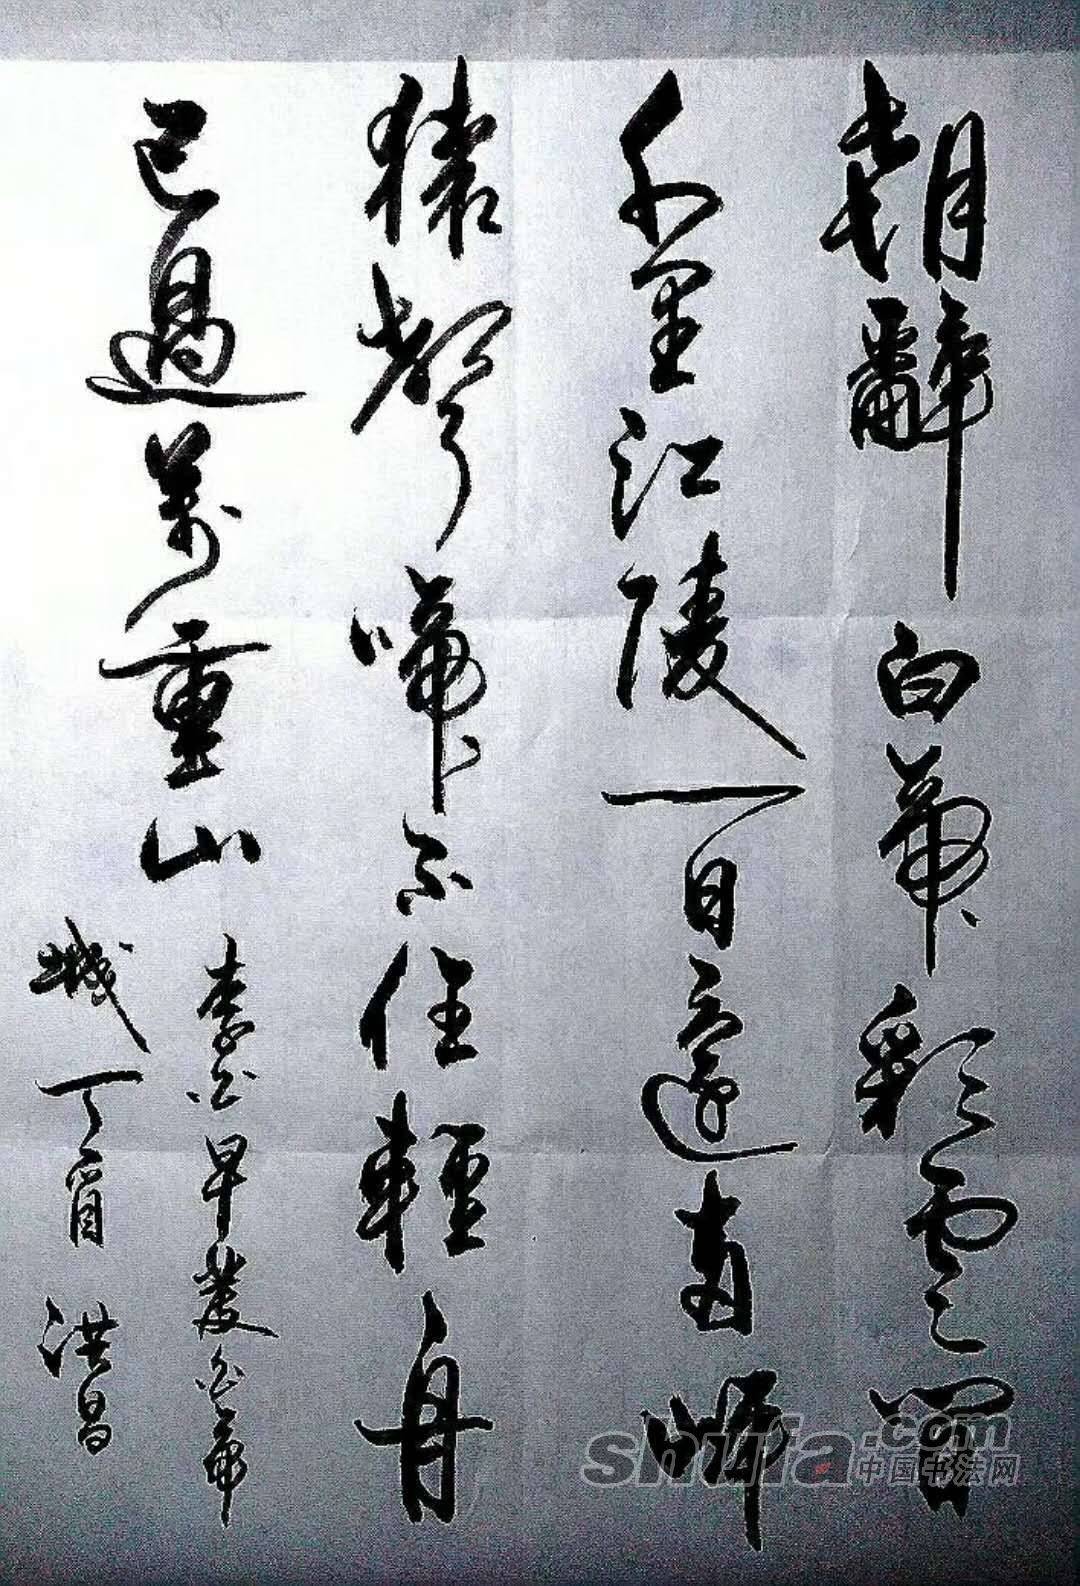 朝辭白帝彩雲間
千里江陵一日還两岸
猿聲啼不住輕舟
已過萬重山
李白早發白帝
城丁酉洪昌
shufa.com
中国书法网